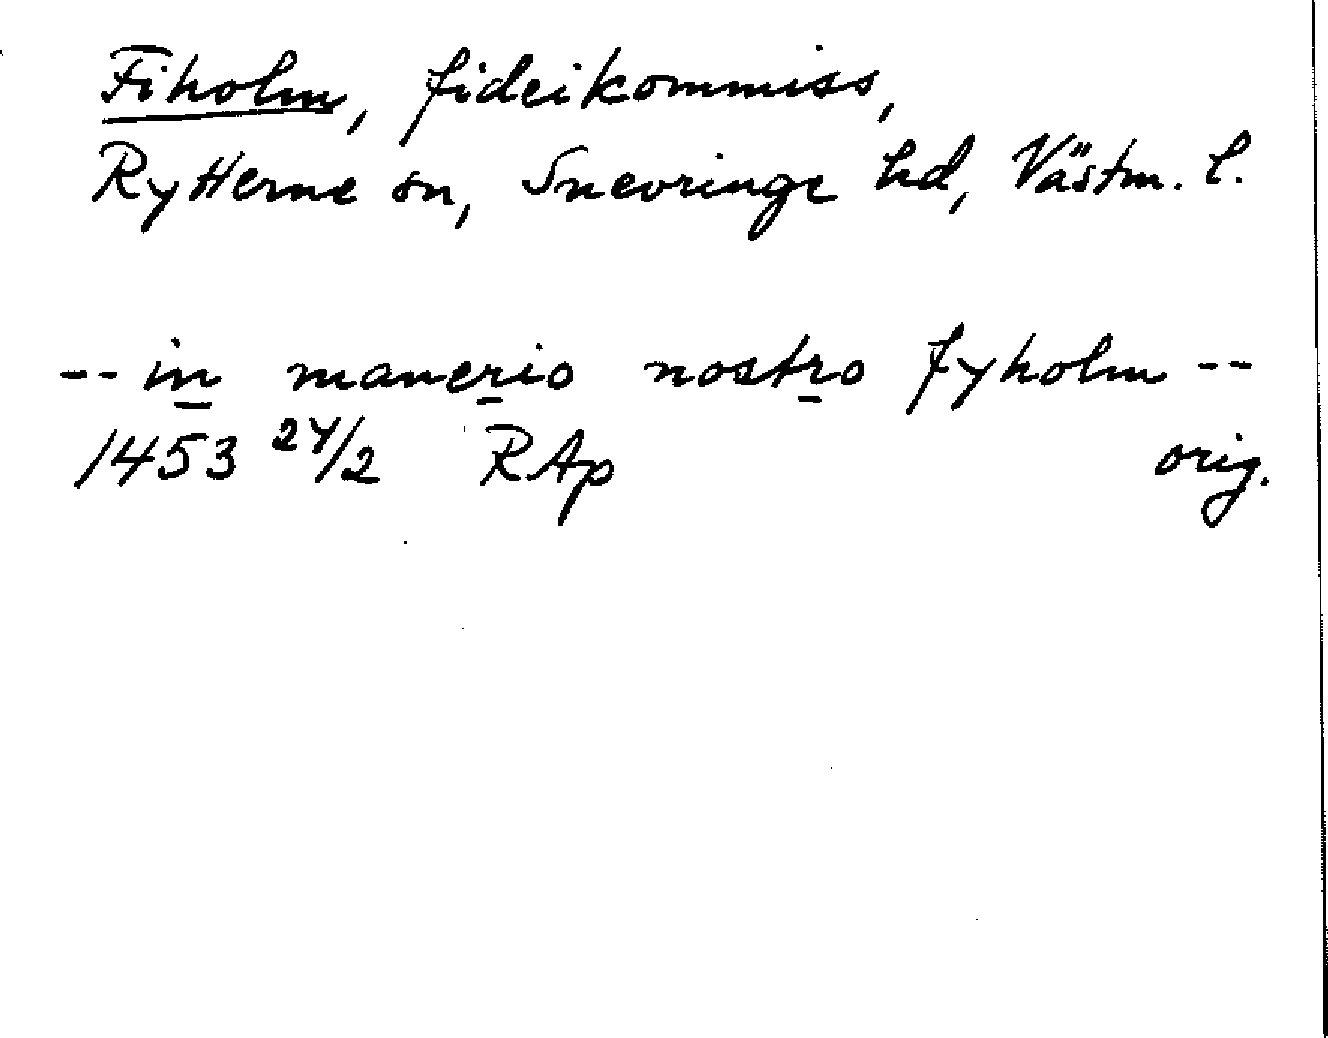 Fiholm, fideikommiss,
Rytterne sn, Snevringe hd, Västm. l.
-- in manerio nostro fyholm --
1453 24/2 RAp orig.